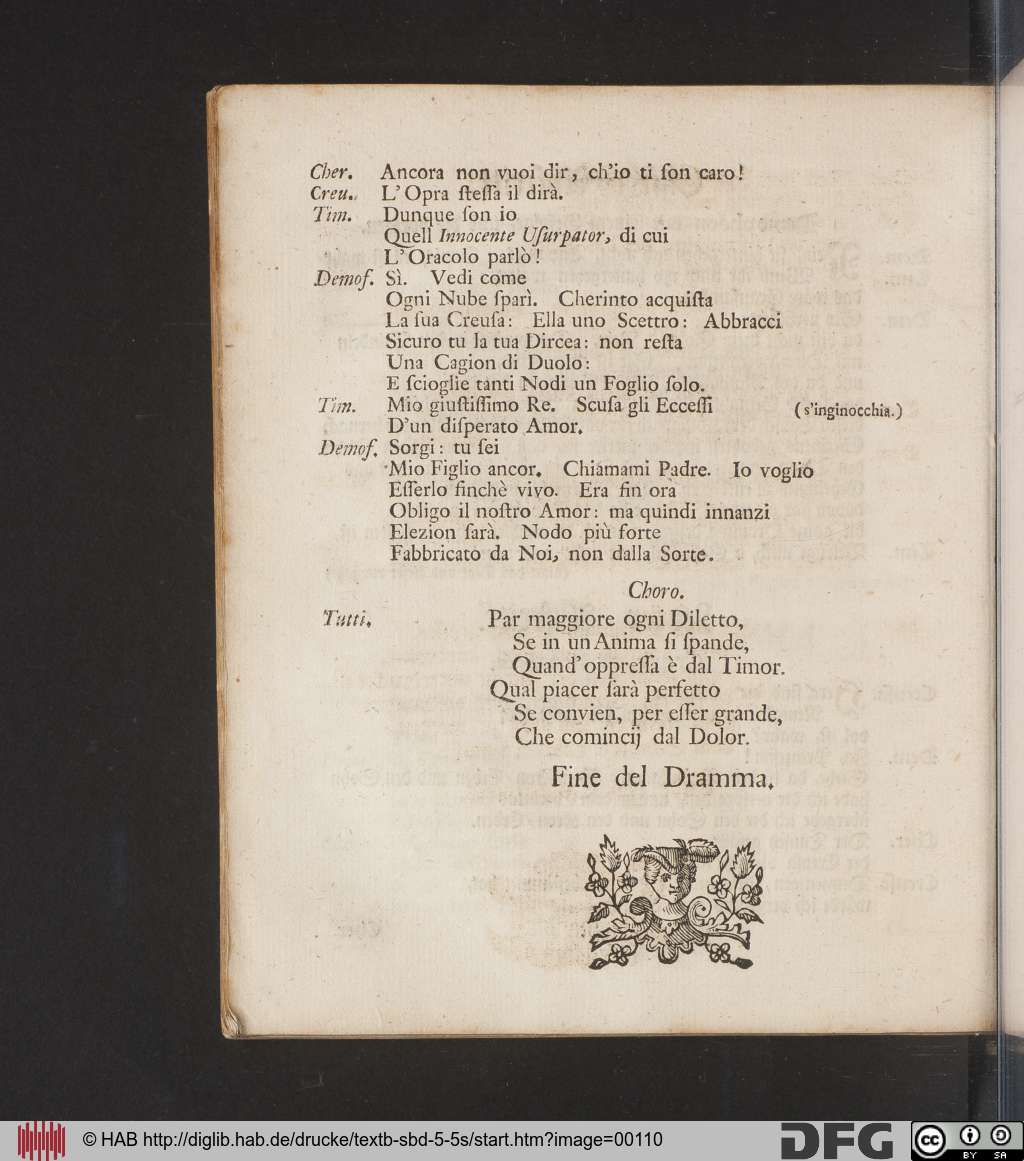 Cher. Ancora non vuoi dir, ch'io ti ſon caro!
Creu. L'Opra ſteſſa il dirà.
Tim. Dunque ſon io
Quell Innocente Uſurpator, di cui
L'Oracolo parlò!
Demof. Sì. Vedi come
Ogni Nube ſparì. Cherinto acquiſta
La ſua Creuſa: Ella uno Scettro: Abbracci
Sicuro tu la tua Dircea: non reſta
Una Cagion di Duolo:
E ſcioglie tanti Nodi un Foglio ſolo.
Tim. Mio giuſtiſſimo Re. Scuſa gli Ecceſſi (s'inginocchia.)
D'un diſperato Amor.
Demof. Sorgi: tu ſei
Mio Figlio ancor. Chiamami Padre. Io voglio
Eſſerlo finchè vivo. Era fin ora
Obligo il noſtro Amor: ma quindi innanzi
Elezion ſarà. Nodo più forte
Fabbricato da Noi, non dalla Sorte.
Choro.
Tutti. Par maggiore ogni Diletto,
Se in un Anima ſi ſpande,
Quand'oppreſſa è dal Timor.
Qual piacer ſarà perfetto
Se convien, per eſſer grande,
Che comincij dal Dolor.
Fine del Dramma.
© HAB http://diglib.hab.de/drucke/textb-sbd-5-5s/start.htm?image=00110
DFG
cc BY SA